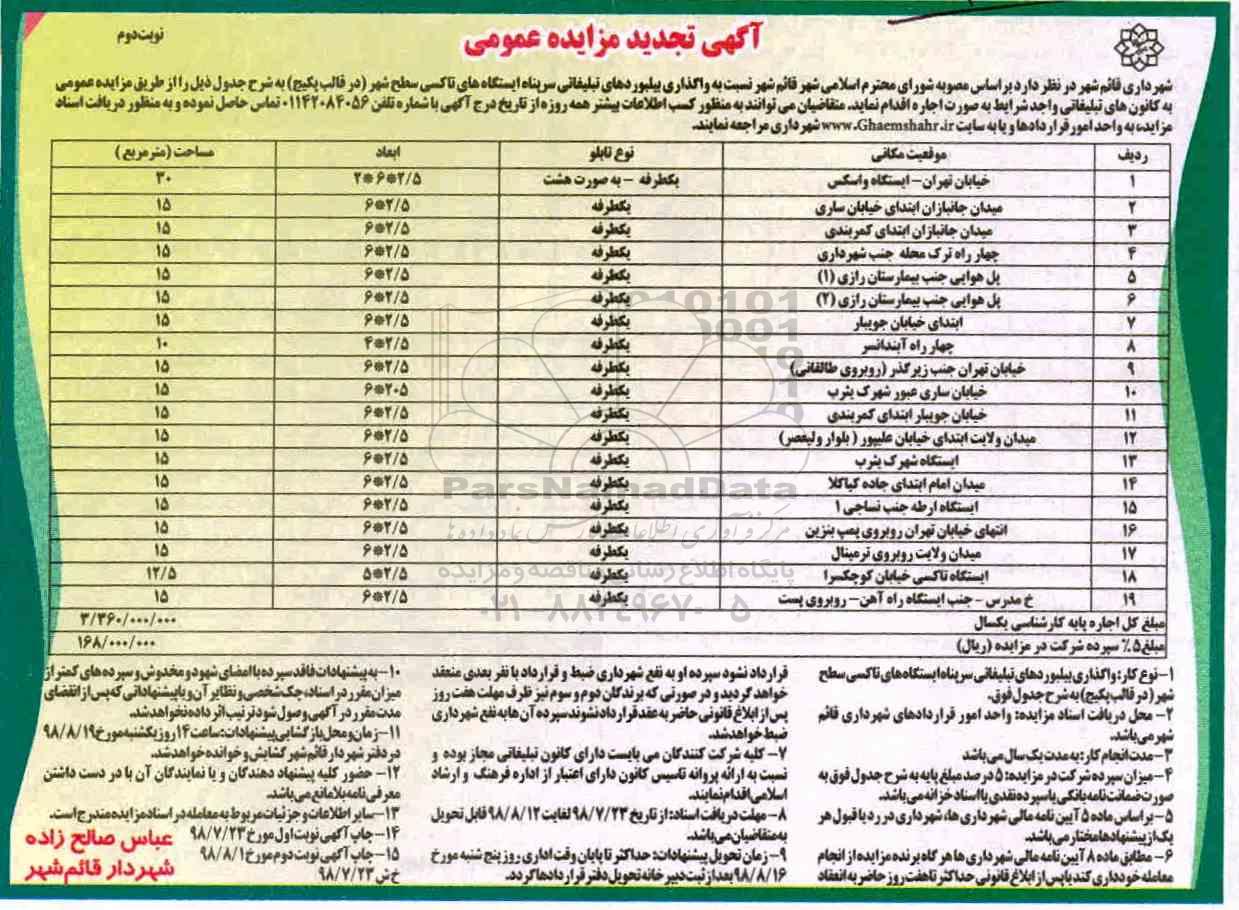 آگهی تجدید مزایده عمومی
نوبت دوم
شهرداری قائم شهر در نظر دارد بر اساس مصوبه شورای محترم اسلامی شهر قائم شهر نسبت به واگذاری بیلبوردهای تبلیغاتی سرپناه ایستگاه های تاکسی سطح شهر (در قالب پکیج) به شرح جدول ذیل را از طریق مزایده عمومی
به کانون های تبلیغاتی واجد شرایط به صورت اجاره اقدام نماید. متقاضیان می توانند به منظور کسب اطلاعات بیشتر همه روزه از تاریخ درج آگهی با شماره تلفن ۰۱۱۴۲۰۸۴۰۵۶ تماس حاصل نموده و به منظور دریافت اسناد
مزایده به واحد امور قراردادها و یا به سایت www.Ghaemshahr.ir شهرداری مراجعه نمایند.
ردیف موقعیت مکانی نوع تابلو ابعاد مساحت (مترمربع)
۱ خیابان تهران- ایستگاه واسکس یکطرفه - به صورت هشت ۲*۶*۲/۵ ۳۰
۲ میدان جانبازان ابتدای خیابان ساری یکطرفه ۶*۲/۵ ۱۵
۳ میدان جانبازان ابتدای کمربندی یکطرفه ۶*۲/۵ ۱۵
۴ چهار راه ترک محله جنب شهرداری یکطرفه ۶*۲/۵ ۱۵
۵ پل هوایی جنب بیمارستان رازی (۱) یکطرفه ۶*۲/۵ ۱۵
۶ پل هوایی جنب بیمارستان رازی (۲) یکطرفه ۶*۲/۵ ۱۵
۷ ابتدای خیابان جویبار یکطرفه ۶*۲/۵ ۱۵
۸ چهار راه آبندانسر یکطرفه ۴*۲/۵ ۱۰
۹ خیابان تهران جنب زیرگذر (روبروی طالقانی) یکطرفه ۶*۲/۵ ۱۵
۱۰ خیابان ساری عبور شهرک یثرب یکطرفه ۶*۲۰۵ ۱۵
۱۱ خیابان جویبار ابتدای کمربندی یکطرفه ۶*۲/۵ ۱۵
۱۲ میدان ولایت ابتدای خیابان علیپور ( بلوار ولیعصر) یکطرفه ۶*۲/۵ ۱۵
۱۳ ایستگاه شهرک یثرب یکطرفه ۶*۲/۵ ۱۵
۱۴ میدان امام ابتدای جاده کیاکلا یکطرفه ۶*۲/۵ ۱۵
۱۵ ایستگاه ارطه جنب نساجی ۱ یکطرفه ۶*۲/۵ ۱۵
۱۶ انتهای خیابان تهران روبروی پمپ بنزین یکطرفه ۶*۲/۵ ۱۵
۱۷ میدان ولایت روبروی ترمینال یکطرفه ۶*۲/۵ ۱۵
۱۸ ایستگاه تاکسی خیابان کوچکسرا یکطرفه ۵*۲/۵ ۱۲/۵
۱۹ خ مدرس - جنب ایستگاه راه آهن- روبروی پست یکطرفه ۶*۲/۵ ۱۵
مبلغ کل اجاره پایه کارشناسی یکسال ۳/۳۶۰/۰۰۰/۰۰۰
مبلغ ۵٪ سپرده شرکت در مزایده (ریال) ۱۶۸/۰۰۰/۰۰۰
۱- نوع کار: واگذاری بیلبوردهای تبلیغاتی سرپناه ایستگاه های تاکسی سطح
شهر (در قالب پکیج) به شرح جدول فوق.
۲- محل دریافت اسناد مزایده: واحد امور قراردادهای شهرداری قائم
شهر می باشد.
۳- مدت انجام کار: به مدت یک سال می باشد
۴- میزان سپرده شرکت در مزایده: ۵ درصد مبلغ پایه به شرح جدول فوق به
صورت ضمانت نامه بانکی یا سپرده نقدی یا اسناد خزانه می باشد.
۵- بر اساس ماده ۵ آیین نامه مالی شهرداری ها، شهرداری در رد یا قبول هر
یک از پیشنهادها مختار می باشد.
۶- مطابق ماده ۸ آیین نامه مالی شهرداری ها هر گاه برنده مزایده از انجام
معامله خودداری کند یا پس از ابلاغ قانونی حداکثر تا هفت روز حاضر به انعقاد
قرارداد نشود سپرده او به نفع شهرداری ضبط و قرارداد با نفر بعدی منعقد
خواهد گردید و در صورتی که برندگان دوم و سوم نیز ظرف مهلت هفت روز
پس از ابلاغ قانونی حاضر به عقد قرارداد نشوند سپرده آن ها به نفع شهرداری
ضبط خواهد شد.
۷- کلیه شرکت کنندگان می بایست دارای کانون تبلیغاتی مجاز بوده و
نسبت به ارائه پروانه تاسیس کانون دارای اعتبار از اداره فرهنگ و ارشاد
اسلامی اقدام نمایند.
۸- مهلت دریافت اسناد: از تاریخ ۹۸/۷/۲۳ لغایت ۹۸/۸/۱۲ قابل تحویل
به متقاضیان می باشد.
۹- زمان تحویل پیشنهادات: حداکثر تا پایان وقت اداری روز پنج شنبه مورخ
۹۸/۸/۱۶ بعد از ثبت دبیرخانه تحویل دفتر قراردادها گردد.
۱۰- به پیشنهادات فاقد سپرده یا امضای شهود و مخدوش و سپرده های کمتر از
میزان مقرر در اسناد، چک شخصی و نظایر آن و یا پیشنهاداتی که پس از انقضای
مدت مقرر در آگهی وصول شود ترتیب اثر داده نخواهد شد.
۱۱- زمان و محل بازگشایی پیشنهادات: ساعت ۱۴ روز یکشنبه مورخ ۹۸/۸/۱۹
در دفتر شهردار قائم شهر گشایش و خوانده خواهد شد.
۱۲- حضور کلیه پیشنهاد دهندگان و یا نمایندگان آن با در دست داشتن
معرفی نامه بلامانع می باشد.
۱۳- سایر اطلاعات و جزئیات مربوط به معامله در اسناد مزایده مندرج است.
۱۴- چاپ آگهی نوبت اول مورخ ۹۸/۷/۲۳
۱۵- چاپ آگهی نوبت دوم مورخ ۹۸/۸/۱
خ ش ۹۸/۷/۲۳
عباس صالح زاده
شهردار قائم شهر
ParsNamadData
پایگاه اطلاع رسانی مناقصه و مزایده
۰۲۱-۸۸۳۴۹۶۷۰-۵